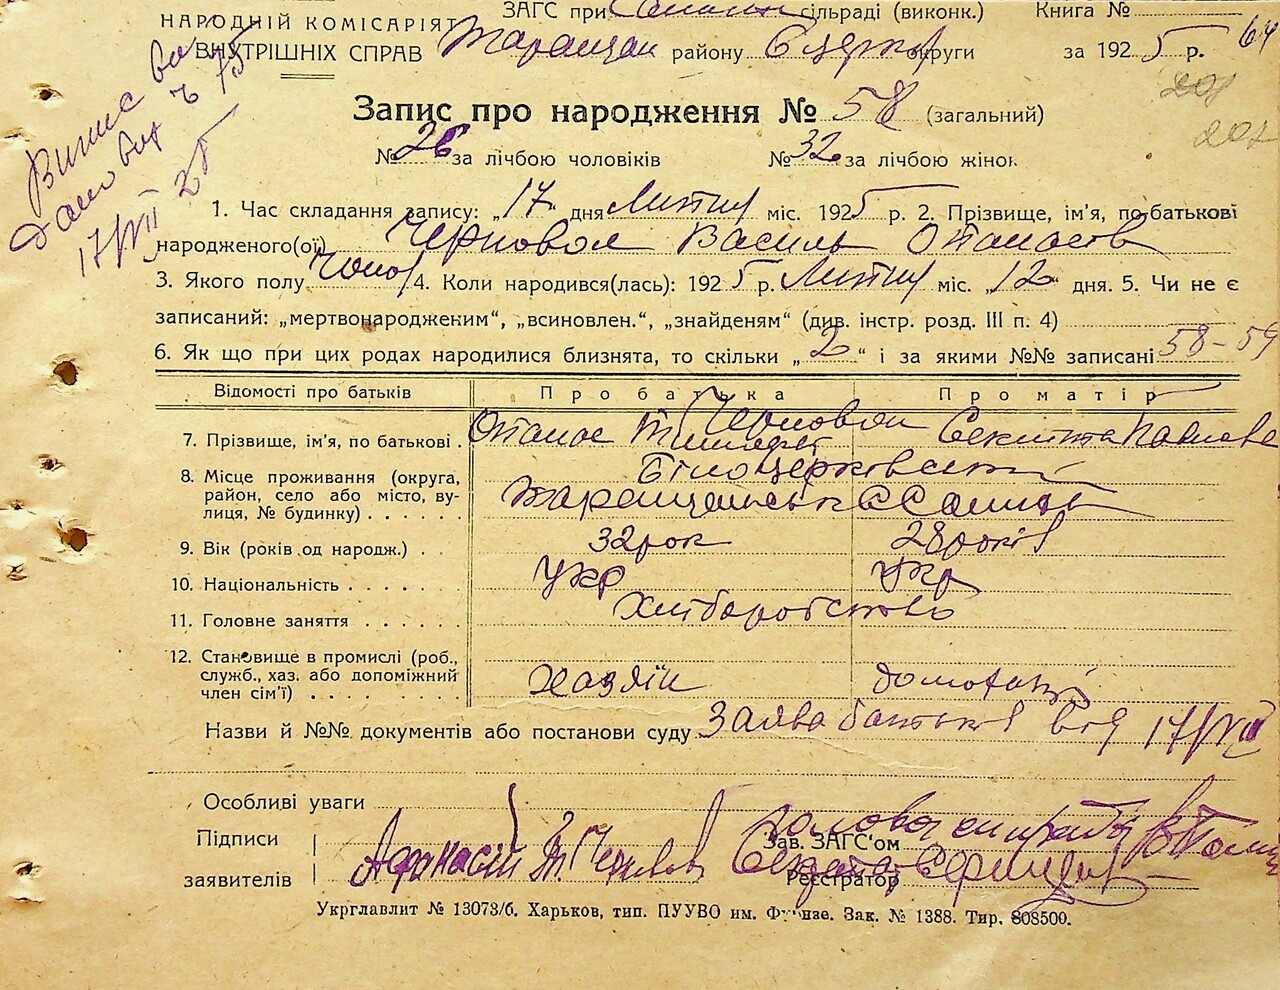 НАРОДНІЙ КОМІСАРІЯТ
ВНУТРІШНІХ СПРАВ
ЗАГС при сільраді (виконк.) Книга №
Таращан району Б Церкв округи за 1925 р. 64
Випис
Дано
17/VII 25
201
201
Запис про народження № 58 (загальний)
№ 26 за лічбою чоловіків № 32 за лічбою жінок
1. Час складання запису: „17“ дня Лютия міс. 1925 р. 2. Прізвище, ім'я, по-батькові
народженого(ої) Черновол Василь Опанасів
3. Якого полу чолов 4. Коли народився(лась): 1925 р. Лютия міс. „12“ дня. 5. Чи не є
записаний: „мертвонародженим“, „всиновлен.“, „знайденям“ (див. інстр. розд. III п. 4)
6. Як що при цих родах народилися близнята, то скільки „2“ і за якими №№ записані 58-59
Відомості про батьків Про батька Про матір
Черновол
7. Прізвище, ім'я, по батькові. Опанас
8. Місце проживання (округа, район, село або місто, вулиця, № будинку) Білоцерковська
9. Вік (років од народж.) 32 рок 28 років
10. Національність Укр Укр
11. Головне заняття Хліборобство
12. Становище в промислі (роб., служб., хаз. або допоміжний член сім'ї) Хазяїн
Назви й №№ документів або постанови суду Заява батьків від 17/VII
Особливі уваги
Підписи
заявителів Афанасій
Голова сільради
Зав. ЗАГС'ом
Реєстратор
Укрглавлит № 13073/б. Харьков, тип. ПУУВО им. Фрунзе. Зак. № 1388. Тир. 808500.